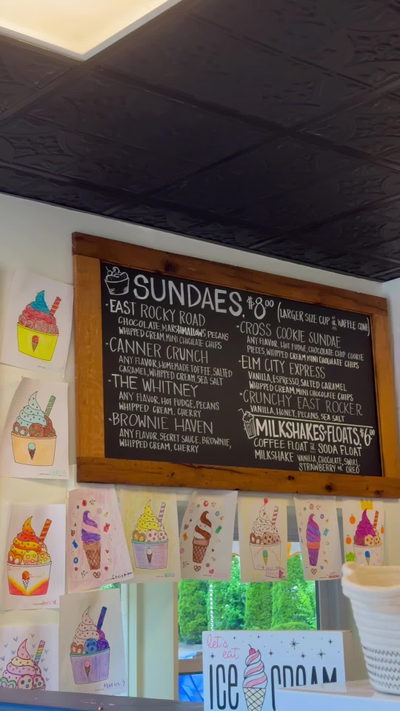 SUNDAES, $8.00 (LARGER SIZE CUP OR WAFFLE CONE)
·EAST ROCKY ROAD
CHOCOLATE, MARSHMALLOWS, PECANS
WHIPPED CREAM, MINI CHOCOLATE CHIPS
·CANNER CRUNCH
ANY FLAVOR, HOMEMADE TOFFEE, SALTED
CARAMEL, WHIPPED CREAM, SEA SALT
·THE WHITNEY
ANY FLAVOR, HOT FUDGE, PECANS
WHIPPED CREAM, CHERRY
·BROWNIE HAVEN
ANY FLAVOR, SECRET SAUCE, BROWNIE,
WHIPPED CREAM, CHERRY
·CROSS COOKIE SUNDAE
ANY FLAVOR, HOT FUDGE, CHOCOLATE CHIP COOKIE
PIECES, WHIPPED CREAM, MINI CHOCOLATE CHIPS
·ELM CITY EXPRESS
VANILLA, ESPRESSO, SALTED CARAMEL
WHIPPED CREAM, MINI CHOCOLATE CHIPS
·CRUNCHY EAST ROCKER
VANILLA, HONEY, PECANS, SEA SALT
MILKSHAKES & FLOATS,
COFFEE FLOAT OR SODA FLOAT
MILKSHAKE VANILLA, CHOCOLATE,
STRAWBERRY OR OREO
let's
eat
ICE CREAM